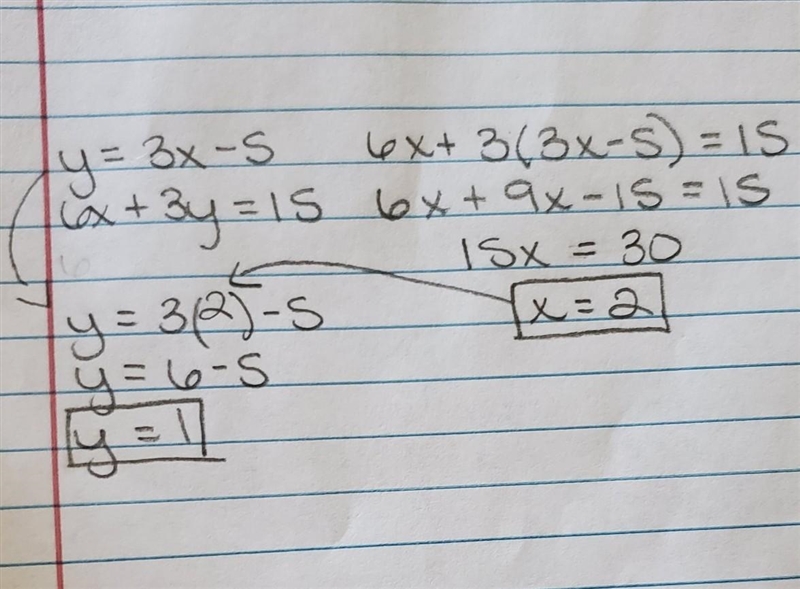 y = 3x - 5
6x + 3y = 15
6x + 3(3x - 5) = 15
6x + 9x - 15 = 15
15x = 30
x = 2
y = 3(2) - 5
y = 6 - 5
y = 1